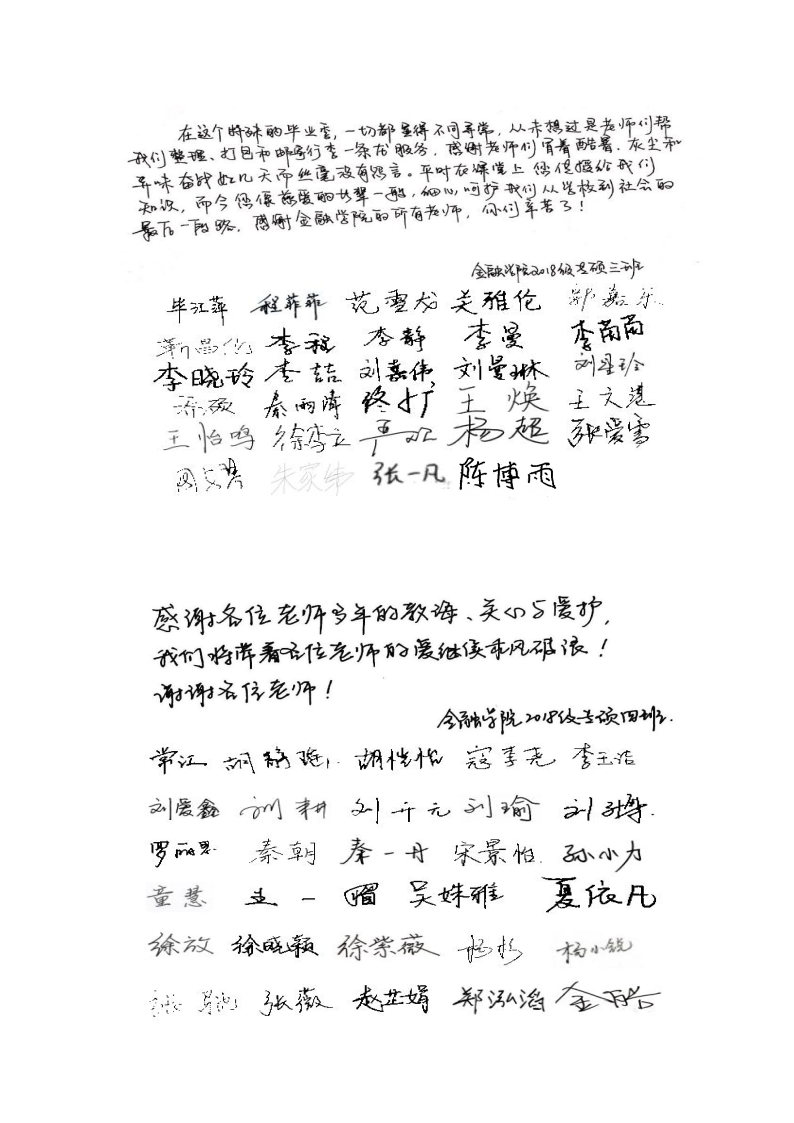 在这个特殊的毕业季,一切都显得不同寻常,从未想过是老师们帮
我们整理、打包和邮寄行李一条龙服务,感谢老师们冒着酷暑、灰尘和
异味奋战好几天而丝毫没有怨言。平时在课堂上您传授给我们
知识,而今您像慈爱的长辈一般,细心呵护我们从学校到社会的
最后一段路,感谢金融学院的所有老师,你们辛苦了!
金融学院2018级专硕三班
毕江萍 程菲菲 范雪龙 关雅伦 郭嘉乐
靳昌伦 李程 李静 李曼 李萌萌
李晓玲 李喆 刘嘉伟 刘曼琳 刘星玲
乔硕 秦雨濛 佟扩 王焕 王文湛
王怡鸣 徐李立 杨超 张爱雪
周文碧 朱家伟 张一凡 陈博雨
感谢各位老师多年的教诲、关心与爱护,
我们将带着各位老师的爱继续乘风破浪!
谢谢各位老师!
金融学院2018级专硕四班.
常江 胡恺怡 寇李尧 李玉洁
刘爱鑫 刘耕 刘开元 刘瑜
罗丽思 秦朝 秦一丹 宋景怡 孙小力
童慧 吴姝雅 夏依凡
徐放 徐晓颖 徐紫薇 杨杉 杨小锐
张薇 赵芷娟 郑泓滔